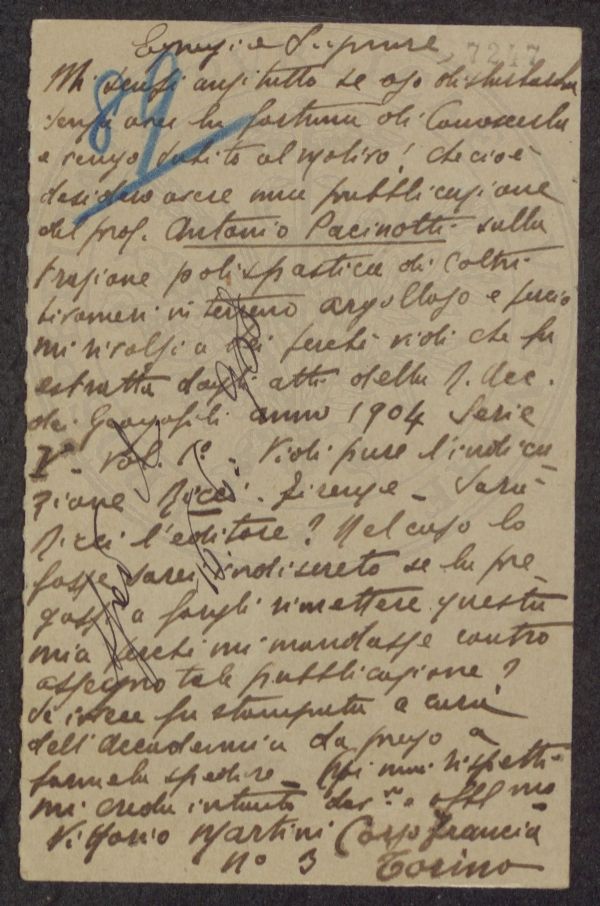 Egregio Signore
7217
89
Mi scusi anzitutto se oso disturbarla
senza aver la fortuna di Conoscerla
e vengo subito al motivo! che cioè
desidero avere una pubblicazione
del prof. Antonio Pacinotti sulla
trazione polispastica di Coltri
in terreno argilloso e perciò
mi rivolsi a Lei perché vidi che fu
estratta dagli atti della R. Acc.
dei Georgofili anno 1904 Serie
V Vol. 1º - Vidi pure l'indica
zione Ricci - Firenze - Sarà
Ricci l'editore? Nel caso lo
fosse sarei indiscreto se la pre
gassi a fargli rimettere questa
mia perché mi mandasse contro
assegno tale pubblicazione?
Se invece fu stampata a cura
dell'Accademia la prego a
farmela spedire - miei rispetti
mi creda intanto
Vittorio Martini Corso Francia
Nº 3 Torino